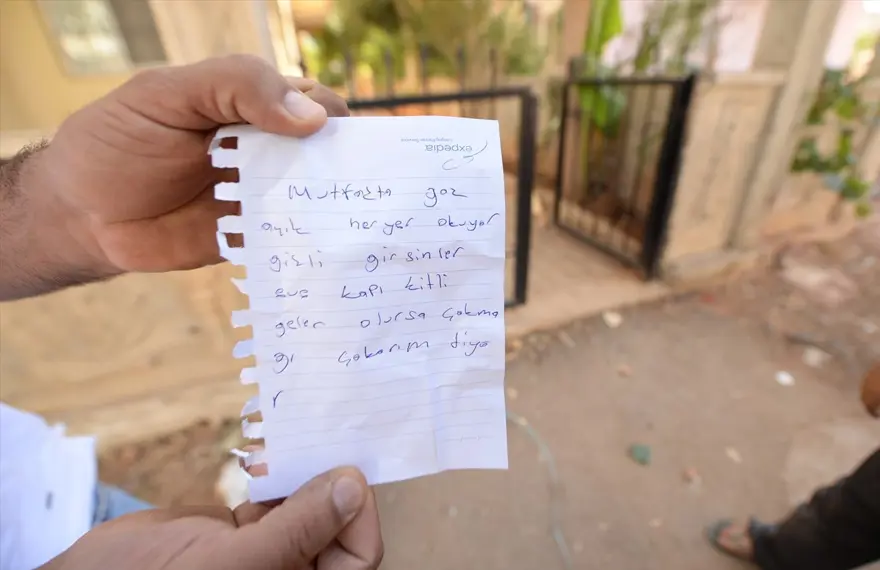 expedia
Mutfakta gaz
açık her yer okuyor
gizli girsinler
eve kapı kitli
gelen olursa çakma
gı çakarım diyo
r